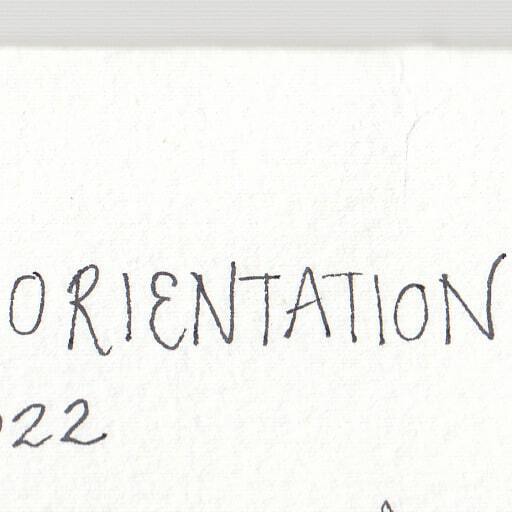 ORIENTATION
022